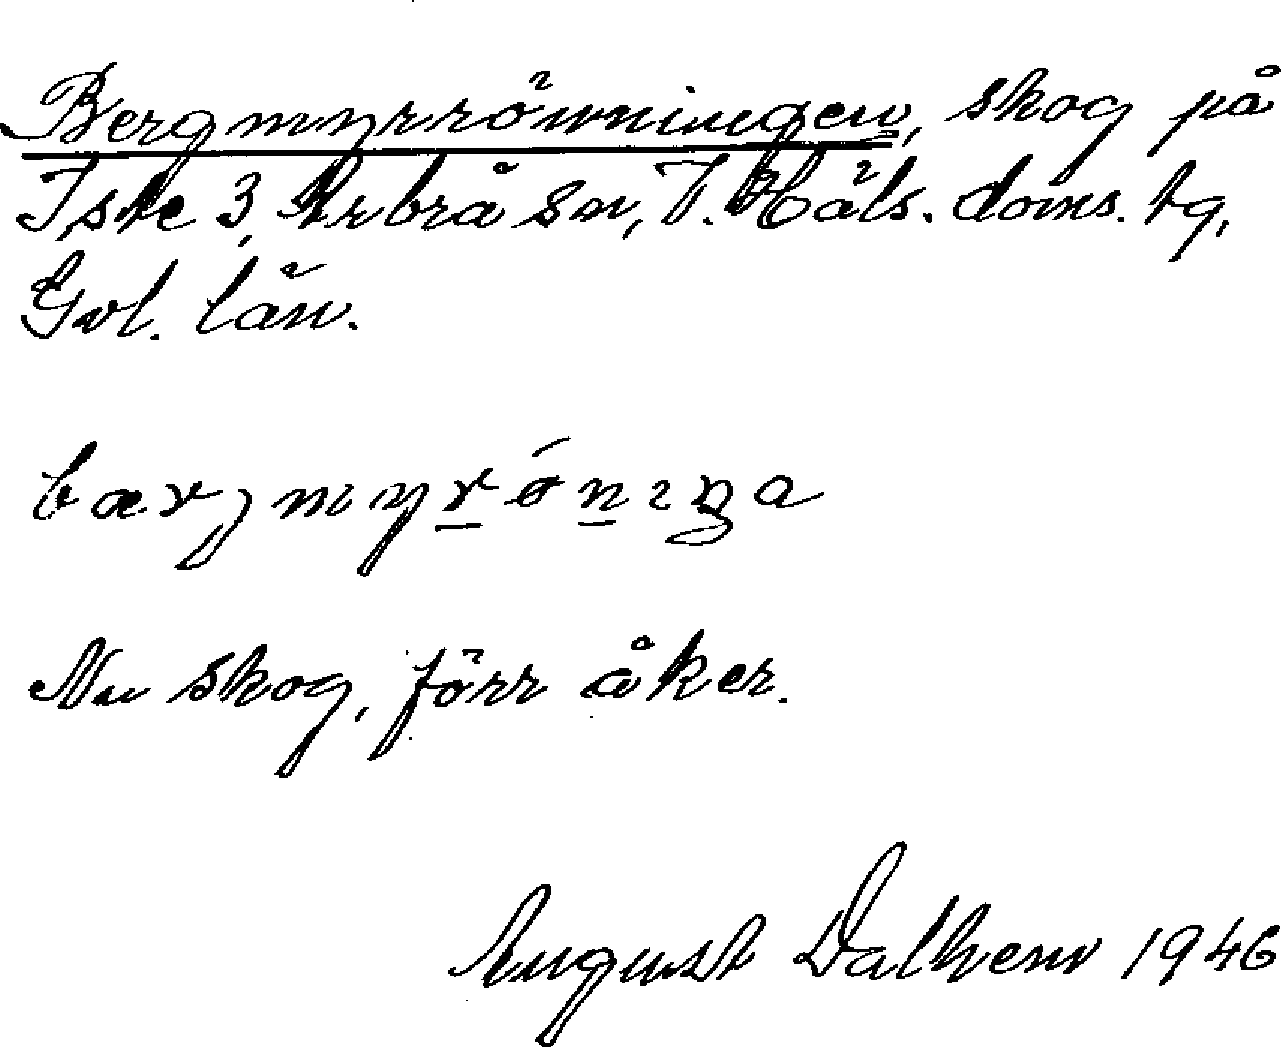 Bergmyrrönningen, skog på
Iste 3, Arbrå sn, V. Häls. doms. tg,
Gvl. län.
Nu skog, förr åker.
August Dalhem 1946